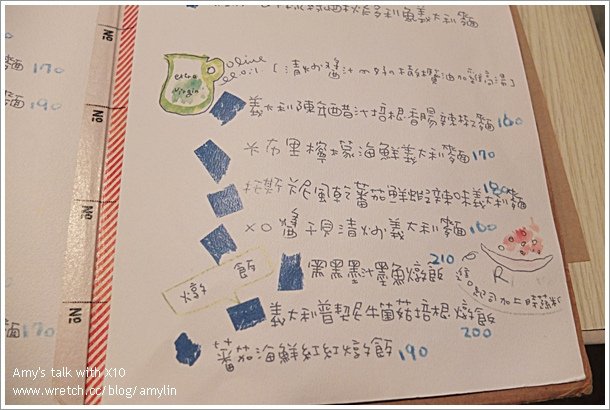 義大利麵
olive oil
extra virgin
[清炒醬汁以特級橄欖油加雞高湯]
義大利陳年酒醋汁培根香腸辣椒麵 160
卡布里檸檬海鮮義大利麵 170
托斯卡尼風乾蕃茄鮮蝦辣味義大利麵 180
XO醬干貝清炒義大利麵 160
燉飯
黑黑墨汁墨魚燉飯 210
義大利普契尼牛菌菇培根燉飯 200
蕃茄海鮮紅紅燉飯 190
R
麵 170
190
麵 170
No
No
No
No
Amy's talk with X10
www.wretch.cc/blog/amylin